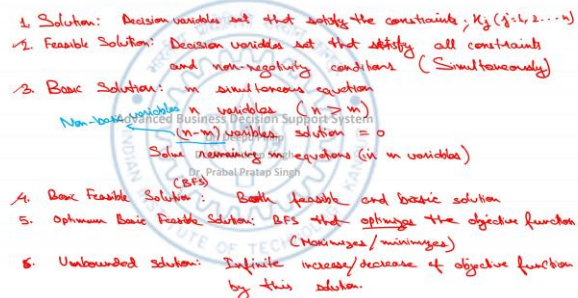 1. Solution: Decision variables set that satisfy the constraints; Xj (j=1, 2 ... n)
2. Feasible Solution: Decision variables set that satisfy all constraints
and non-negativity conditions (Simultaneously)
3. Basic Solution: m simultaneous equation
n variables (n > m)
Non-basic variables
Advanced Business Decision Support System
(n-m) varibles solution = 0
Solve remaining m equations (in m variables)
Dr. Prabal Pratap Singh
(BFS)
4. Basic Feasible Solution: Both feasible and basic solution
5. Optimum Basic Feasible Solution: BFS that optimizes the objective function
(Maximizes/minimizes)
6. Unbounded Solution: Infinite increase/decrease of objective function
by this solution.